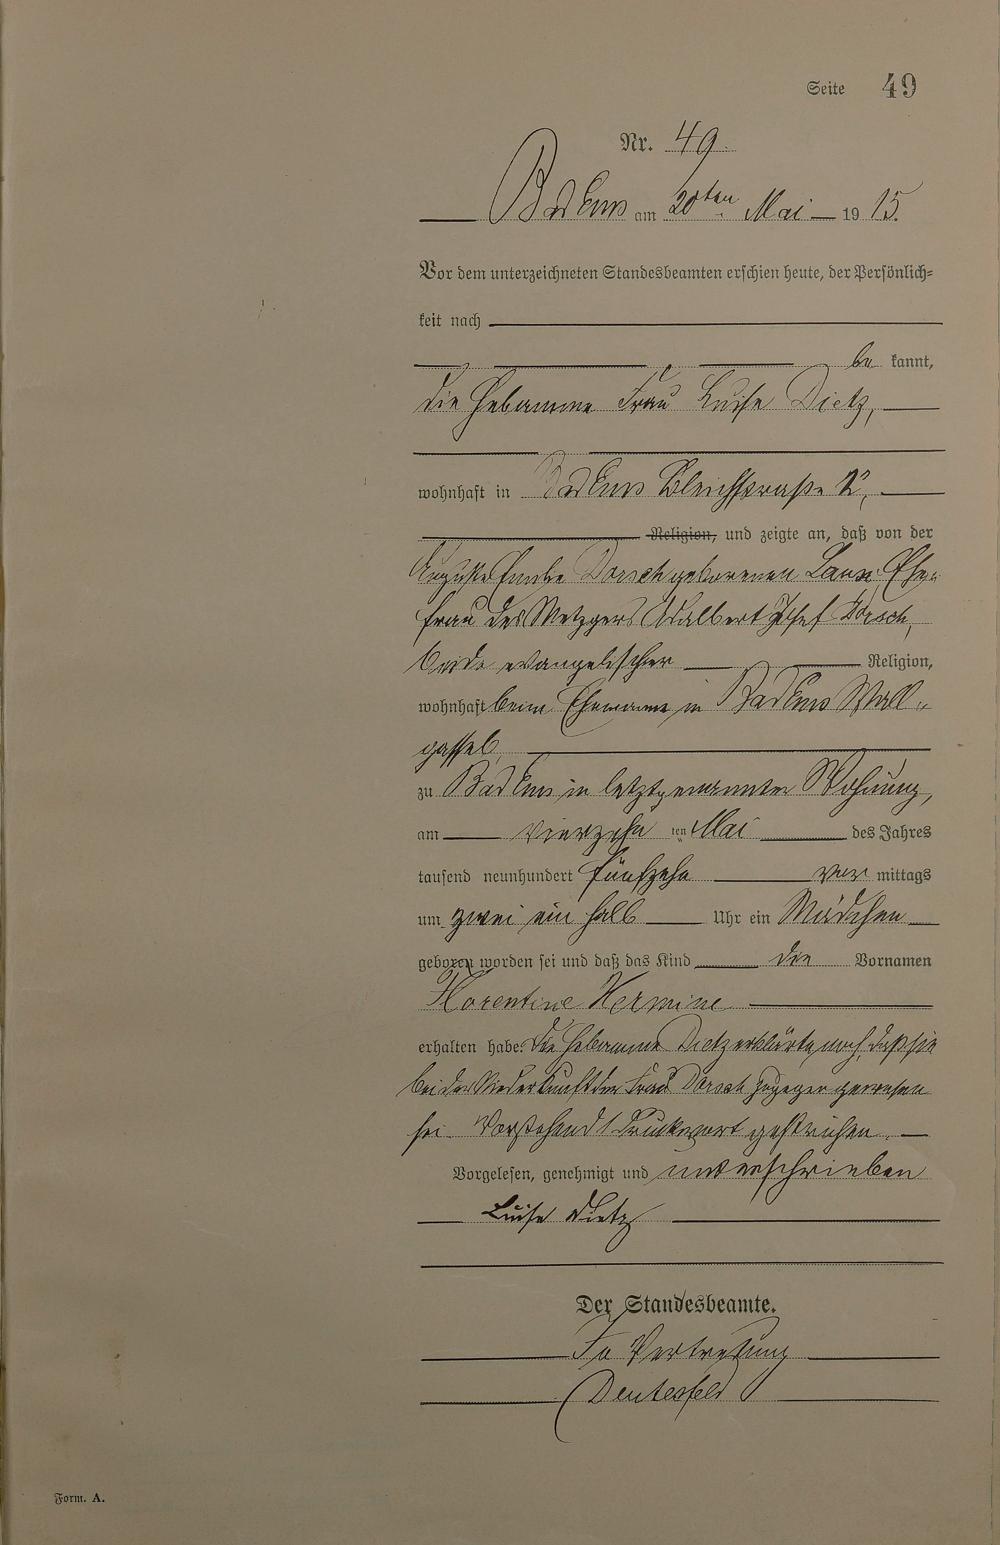 Seite 49
Nr. 49.
Bad Ems am 20ten Mai 1915.
Vor dem unterzeichneten Standesbeamten erschien heute, der Persönlich=
keit nach
be kannt,
die Hebamme Frau Luise Dietz,
wohnhaft in Bad Ems Bleichstraße
Religion, und zeigte an, daß von der
Auguste Emilie Dorsch geborenen Ehe-
frau des Metzgers Adalbert Josef Dorsch,
beide evangelischer Religion,
wohnhaft beim Ehemanne in Bad Ems Wall-
gasse
zu Bad Ems in letztgenannter Wohnung,
am vierzehnten Mai des Jahres
tausend neunhundert fünfzehn vor mittags
um zwei ein halb Uhr ein Mädchen
geboren worden sei und daß das Kind die Vornamen
Florentine Hermine
erhalten habe. Die Hebamme Dietz erklärte noch, daß sie
bei der Niederkunft der Frau Dorsch zugegen gewesen
sei. Vorstehend 1 Druckwort gestrichen.
Vorgelesen, genehmigt und unterschrieben
Luise Dietz
Der Standesbeamte.
In Vertretung
Form. A.